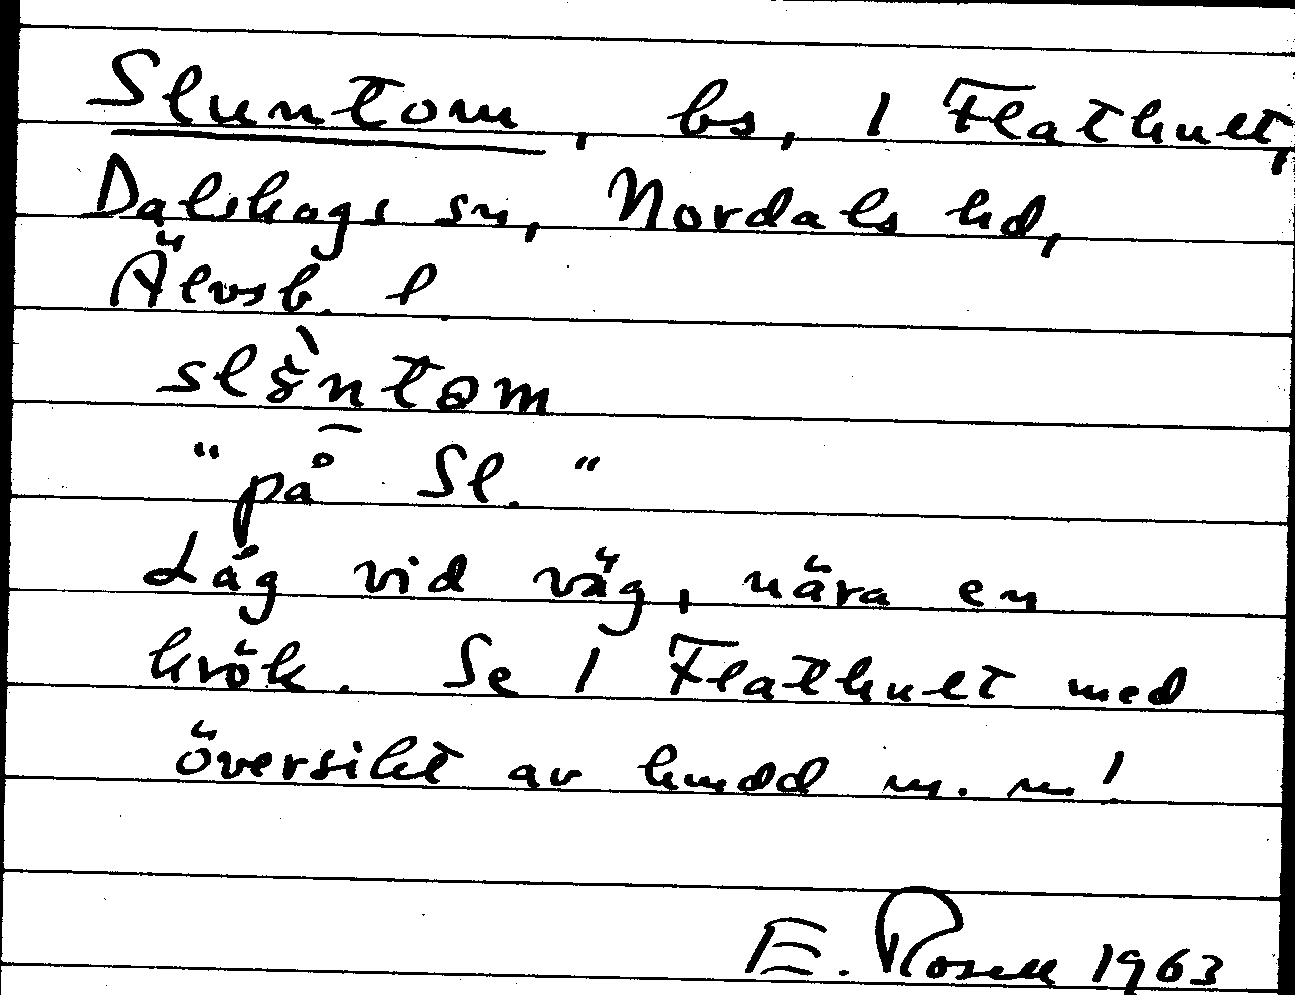 Sluntom, bs, 1 Flathult,
Dalskogs sn, Nordals hd,
Älvsb. l.
slo᷅ntom
"på Sl."
Låg vid väg, nära en
krök. Se 1 Flathult med
översikt av hmdd m. m!
E. Rosell 1963